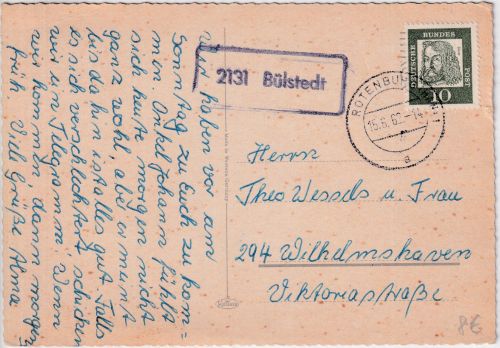 Wir haben vor am
Sonntag zu Euch zu kom=
men. Onkel Johann fühlt
sich heute morgen nicht
ganz wohl, aber er meint
bis dahin ist alles gut. Falls
es sich verschlechtert schicken
wir ein Telegramm. Wenn
wir kommen, dann morgens
früh. Viel Grüße Alma
2131 Bülstedt
DEUTSCHE BUNDES POST
10
ROTENBURG
15.6.62.-14
a
Herrn
Theo Wessels u. Frau
294 Wilhelmshaven
Viktoriastraße
8€